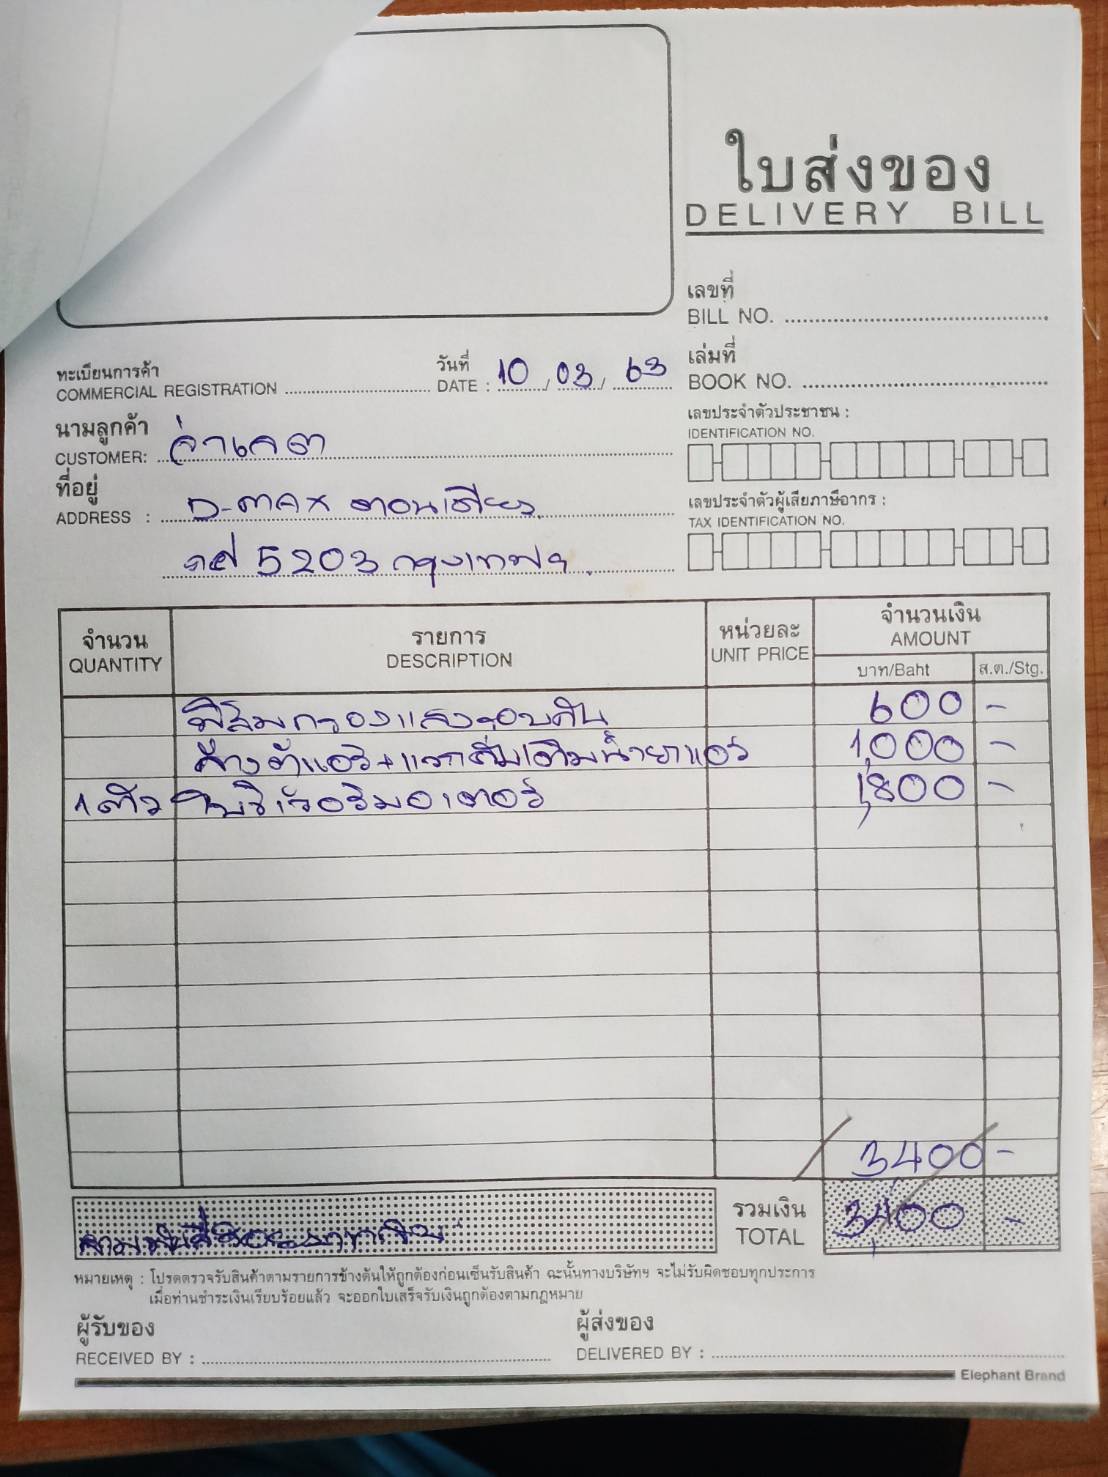 ใบส่งของ
DELIVERY BILL
เลขที่
BILL NO.
ทะเบียนการค้า
COMMERCIAL REGISTRATION
วันที่
DATE : 10 / 03 / 63
เล่มที่
BOOK NO.
นามลูกค้า
CUSTOMER: จ่าเดต
เลขประจำตัวประชาชน :
IDENTIFICATION NO.
ที่อยู่
ADDRESS : D-max ตอนเดียว
5203 กรุงเทพฯ
เลขประจำตัวผู้เสียภาษีอากร :
TAX IDENTIFICATION NO.
จำนวน รายการ หน่วยละ จำนวนเงิน
QUANTITY DESCRIPTION UNIT PRICE AMOUNT
บาท/Baht ส.ต./Stg.
ฟิล์มกรองแสงรอบคัน 600 -
ล้างตู้แอร์+แวคคั่มเติมน้ำยาแอร์ 1,000 -
1 ตัว โบริเวอร์มอเตอร์ 1,800 -
3,400 -
สามพันสี่ร้อยบาทถ้วน
รวมเงิน
TOTAL 3,400 -
หมายเหตุ : โปรดตรวจรับสินค้าตามรายการข้างต้นให้ถูกต้องก่อนเซ็นรับสินค้า ฉะนั้นทางบริษัทฯ จะไม่รับผิดชอบทุกประการ
เมื่อท่านชำระเงินเรียบร้อยแล้ว จะออกใบเสร็จรับเงินถูกต้องตามกฎหมาย
ผู้รับของ
RECEIVED BY :
ผู้ส่งของ
DELIVERED BY :
Elephant Brand